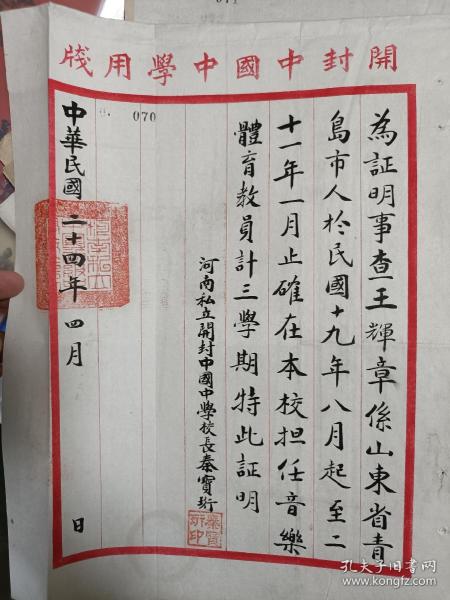 開封中國中學用牋
為証明事查王輝章係山東省青
島市人於民國十九年八月起至二
十一年一月止確在本校担任音樂
體育教員計三學期特此証明
河南私立開封中國中學校長秦寶珩
中華民國二十四年四月 日
070
孔夫子旧书网
www.kongfz.com